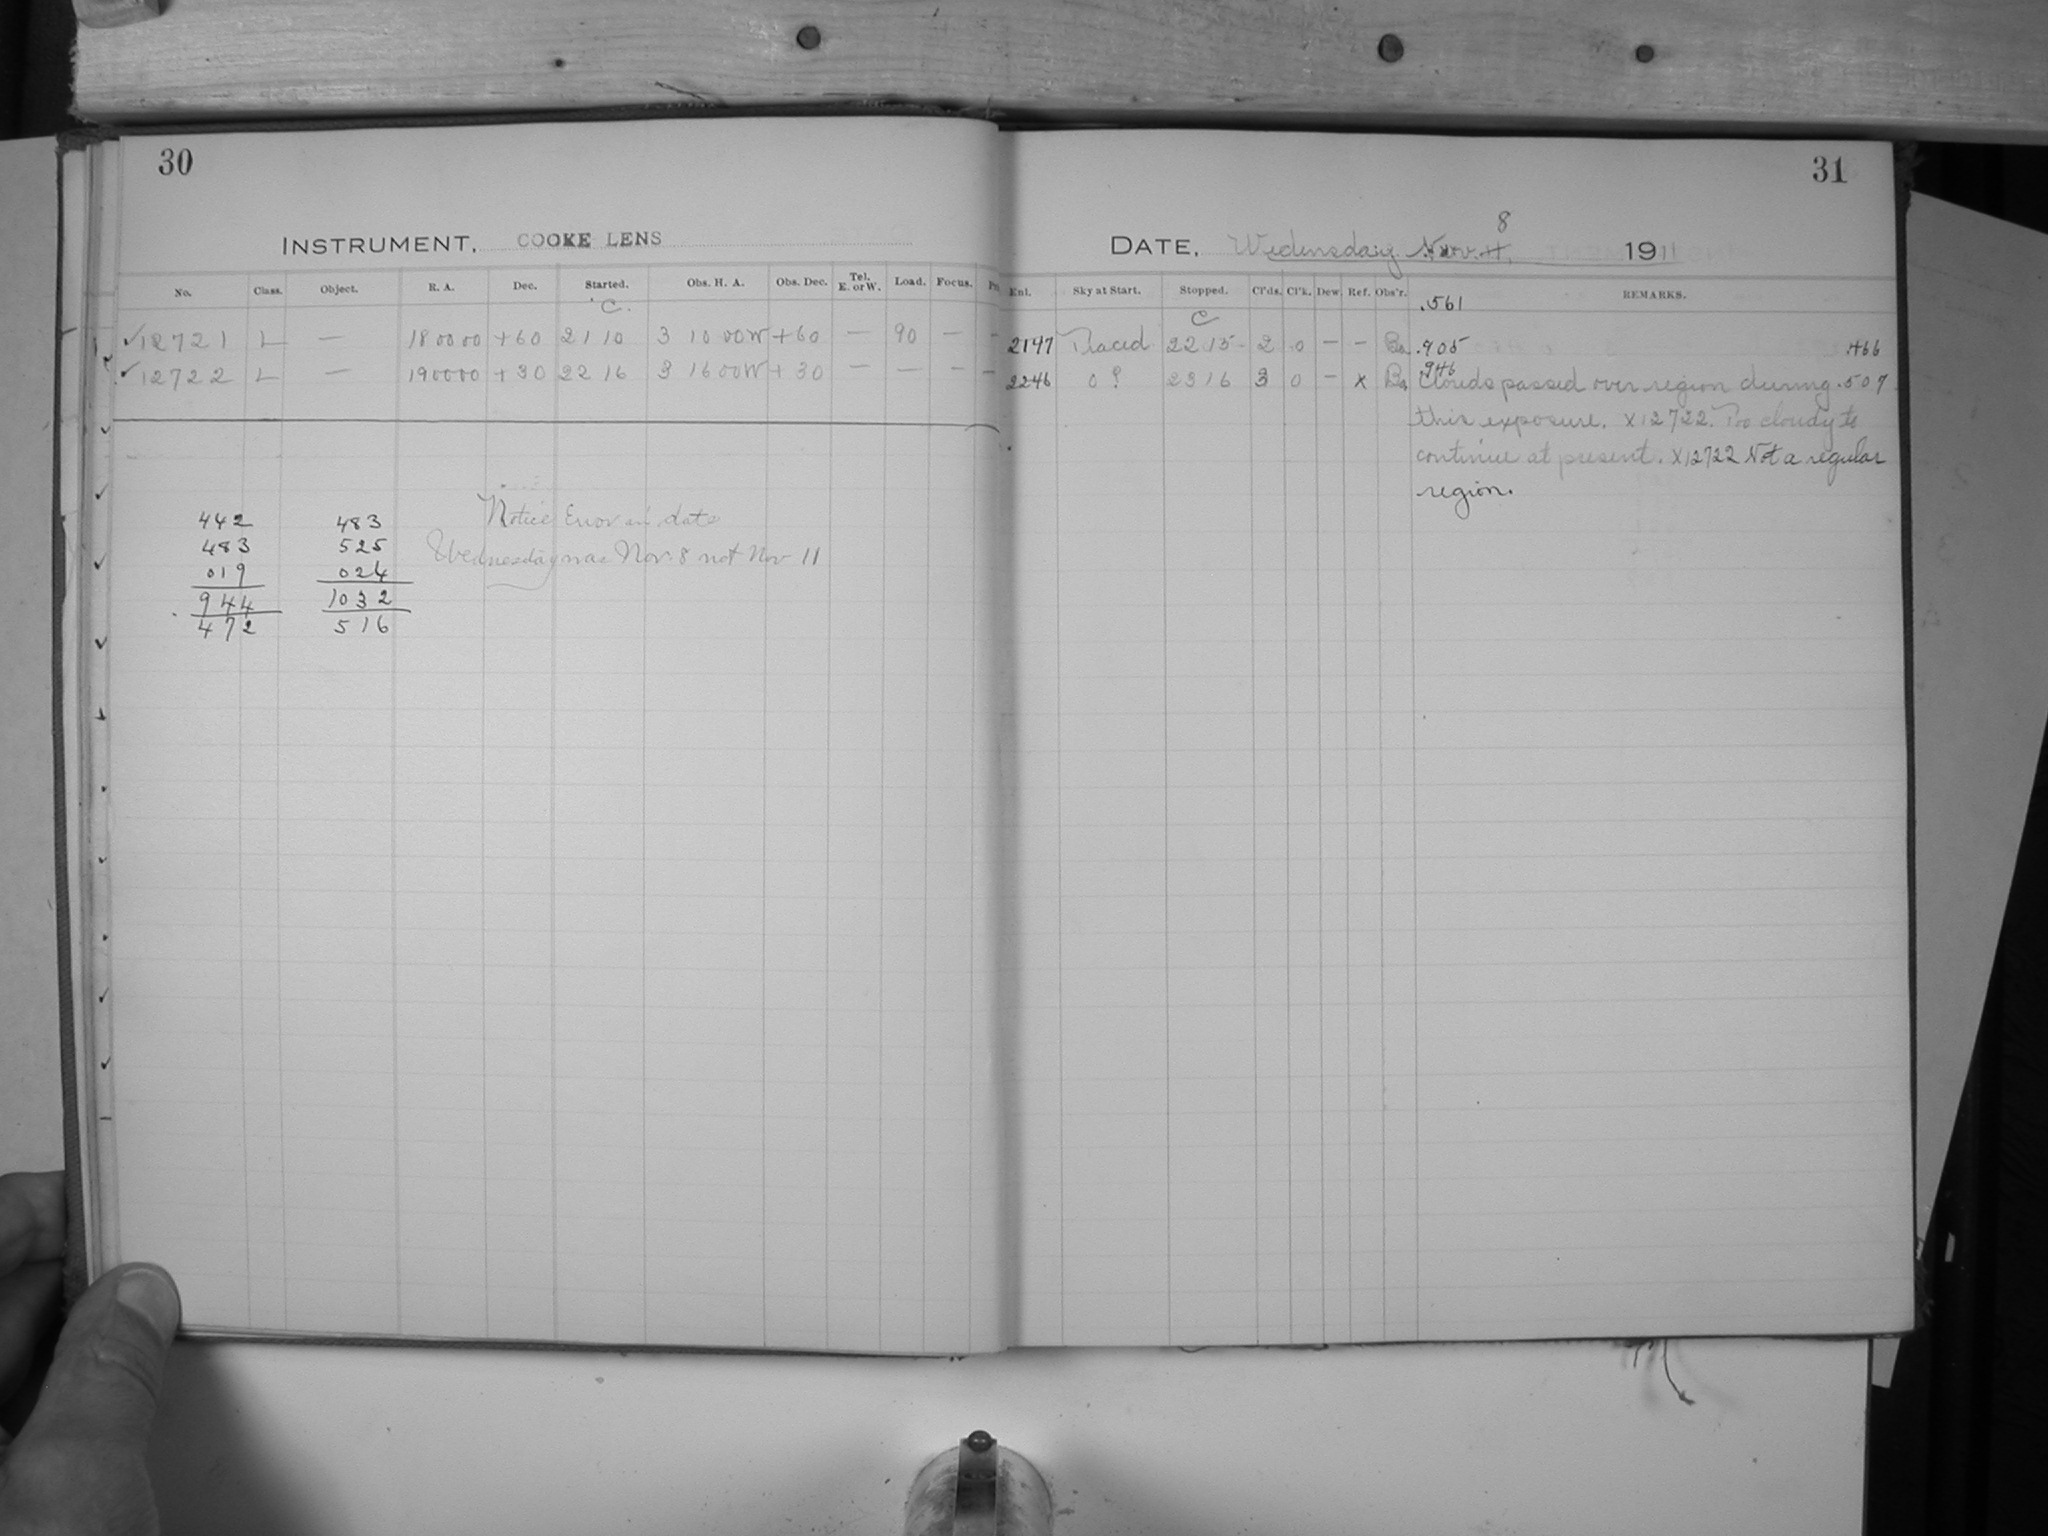 30
31
INSTRUMENT, COOKE LENS
8
DATE, Wedensday Nov. 11, 1911
No. Class. Object. R. A. Dec. Started. Obs. H. A. Obs. Dec. Tel. E. or W. Load. Focus. Enl. Sky at Start. Stopped. Cl'ds. Cl'k. Dew. Ref. Obs'r. REMARKS.
C. C .561
✓12721 L — 18 00 00 +60 21 10 3 10 00W +60 — 90 — — 2147 22 15 2 0 — — Ba .905 .466
946
✓12722 L — 19 00 00 +30 22 16 3 16 00W +30 — — — — 2246 0? 23 16 3 0 — x Ba Clouds passed over region during .507
this exposure. X12722. Too cloudy to
continue at present. X12722 Not a regular
region.
442 483 Notice Error in date
483 525 Wednesday was Nov. 8 not Nov 11
019 024
944 1032
472 516